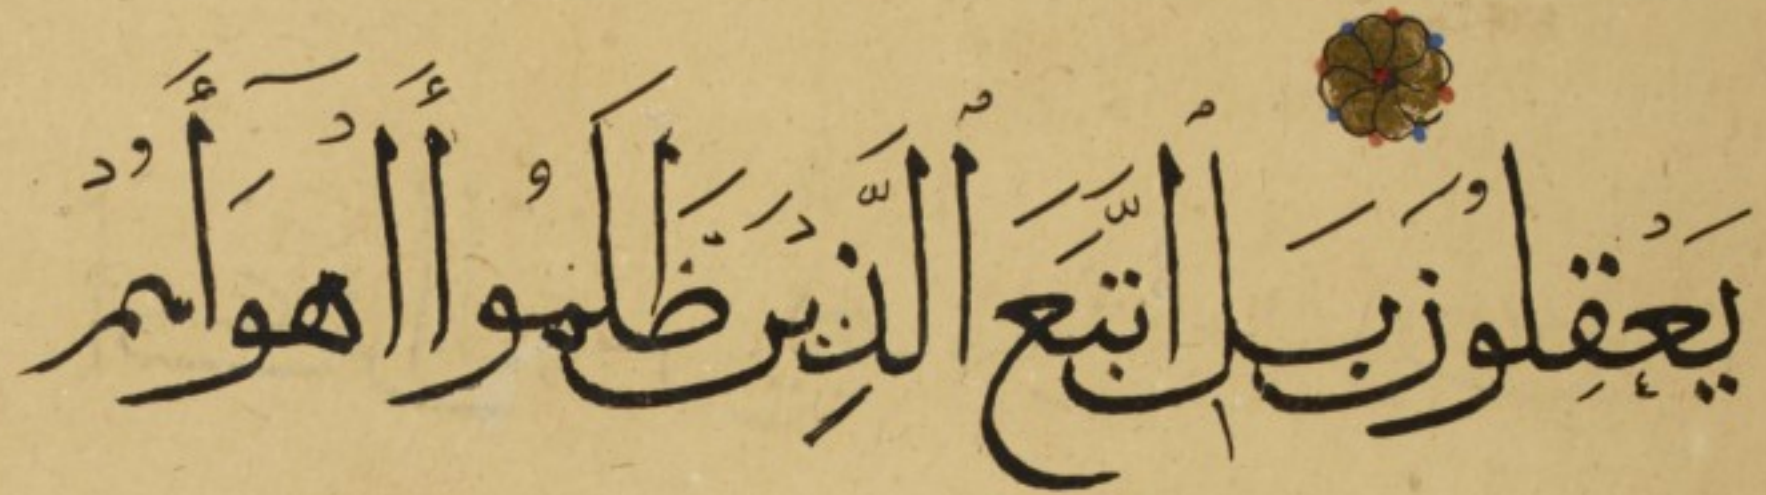 يَعْقِلُونَ بَلِ ٱتَّبَعَ ٱلَّذِينَ ظَلَمُوٓا۟ أَهْوَآءَهُمْ